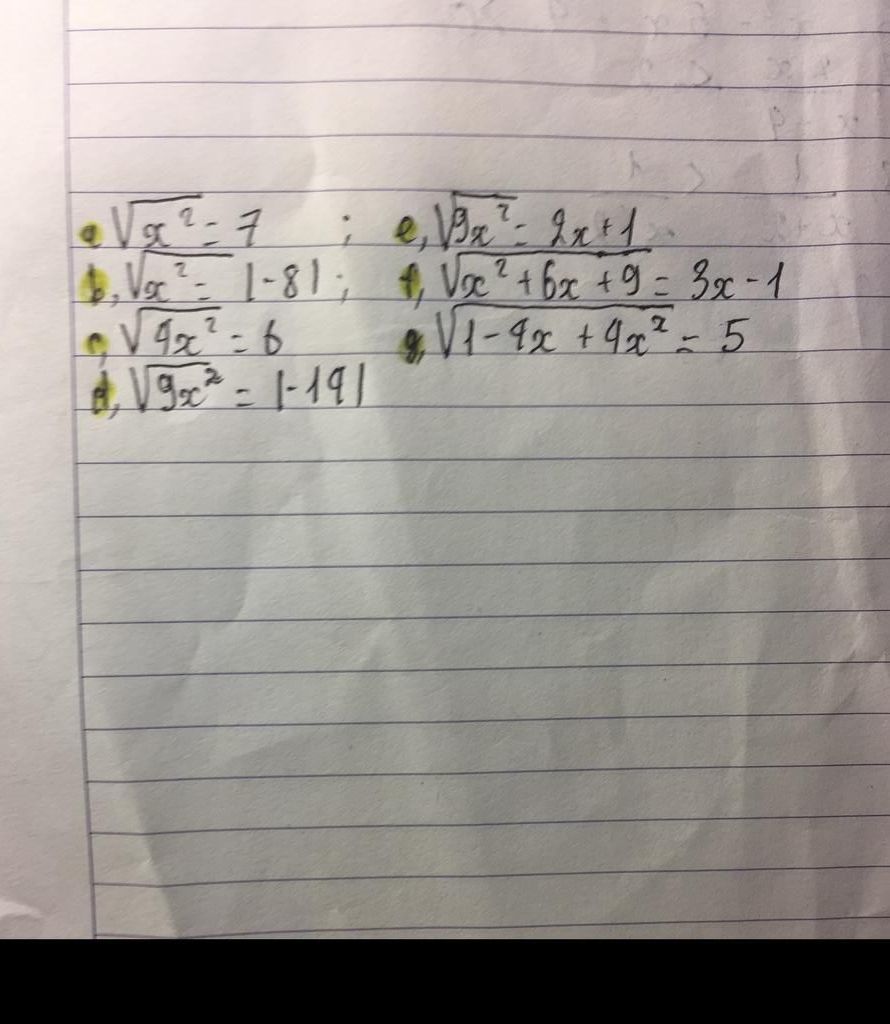 a √x² = 7 ; e, √9x² = 2x + 1
b, √x² = |-8| ; f, √x² + 6x + 9 = 3x - 1
c, √4x² = 6 g, √1 - 4x + 4x² = 5
d, √9x² = |-19|